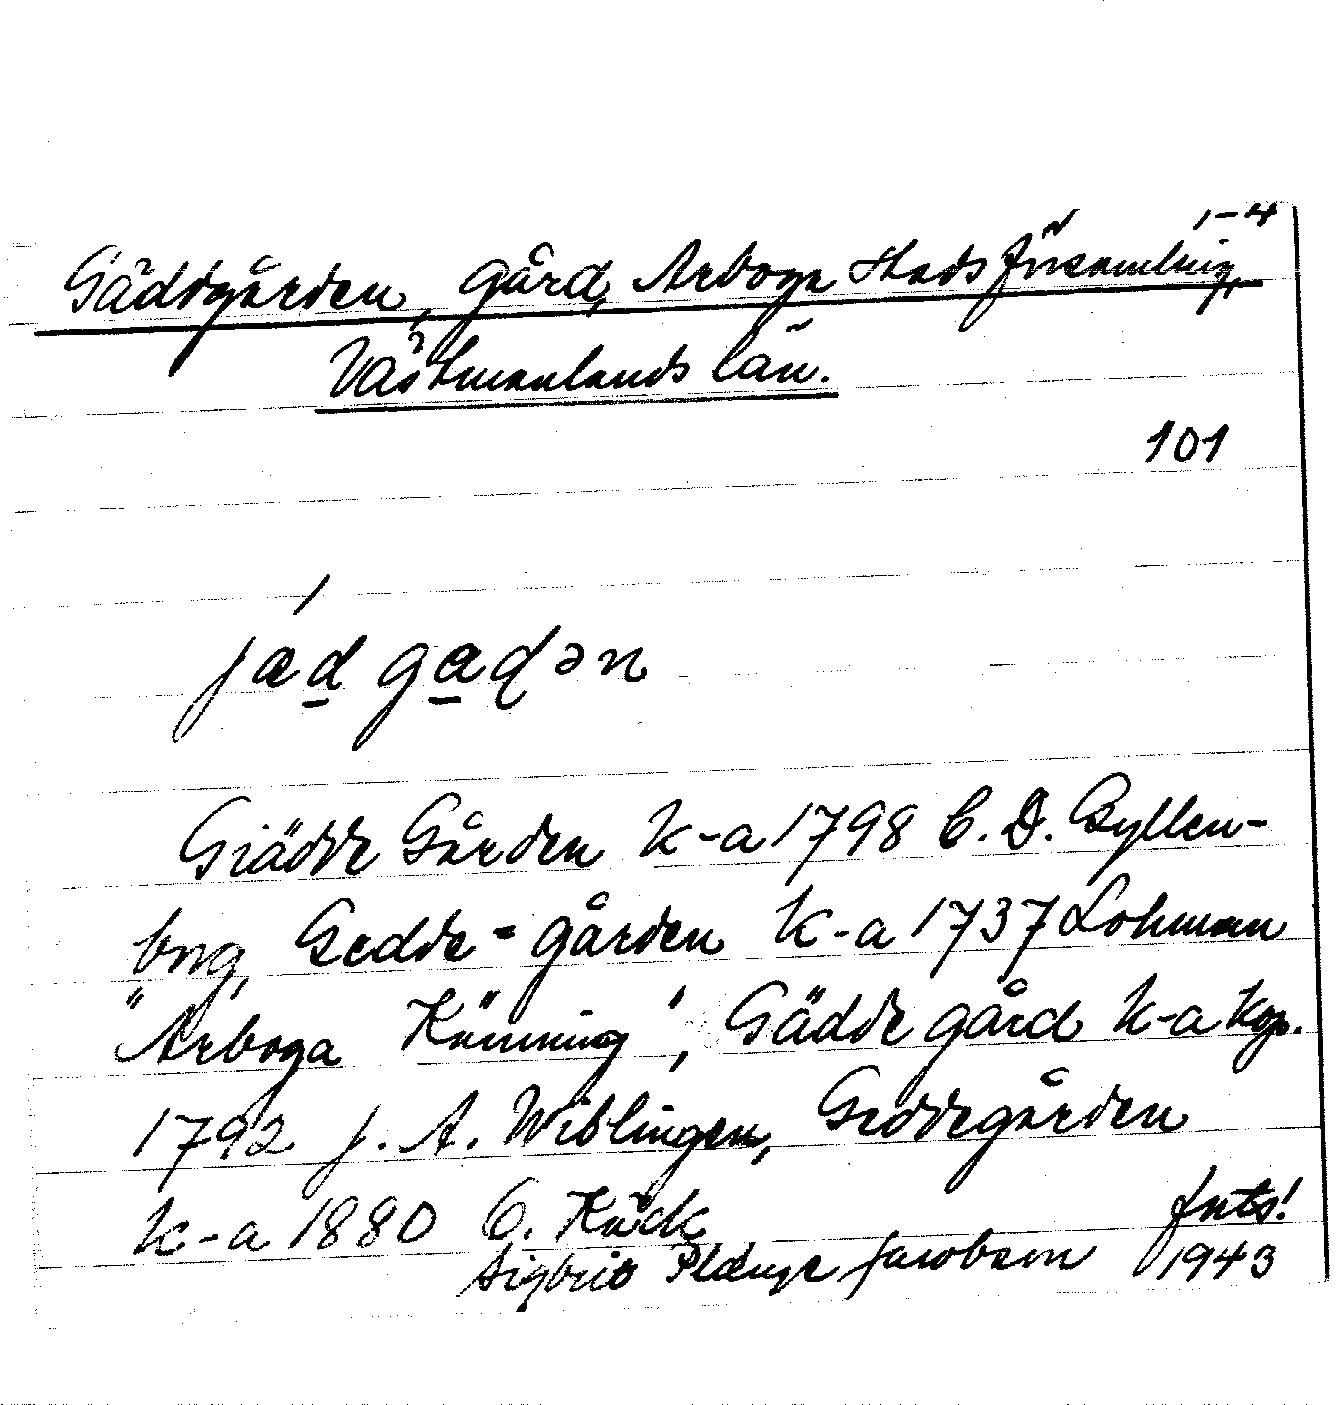 1-4
Gäddgården, gård, Arboga Stadsförsamling,
Västmanlands län.
101
jæ̀d gadən
Giädde Gården k-a 1798 C. D. Gyllen-
borg, Gedde-gården k-a 1737 Lohman
"Arboga Känning", Gädde gård k-a kop.
1792 J. A. Wiblingen, Geddegården
k-a 1880 O. Käck
forts!
Sigbrit Plænge Jacobson 1943